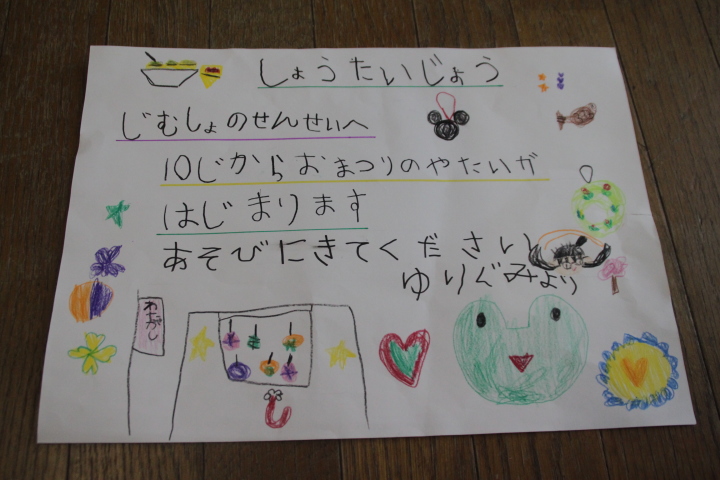 しょうたいじょう
じむしょのせんせいへ
10じからおまつりのやたいが
はじまります
あそびにきてください
ゆりぐみより
わなげし